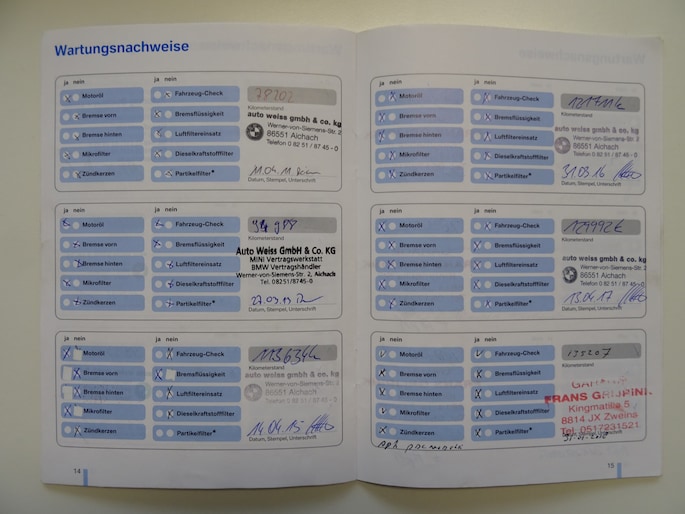 Wartungsnachweise
ja nein
Motoröl
Bremse vorn
Bremse hinten
Mikrofilter
Zündkerzen
ja nein
Fahrzeug-Check
Bremsflüssigkeit
Luftfiltereinsatz
Dieselkraftstofffilter
Partikelfilter*
78202
Kilometerstand
auto weiss gmbh & co. kg
Werner-von-Siemens-Str. 2
86551 Aichach
Telefon 0 82 51 / 87 45 - 0
11.04.11
Datum, Stempel, Unterschrift
ja nein
Motoröl
Bremse vorn
Bremse hinten
Mikrofilter
Zündkerzen
ja nein
Fahrzeug-Check
Bremsflüssigkeit
Luftfiltereinsatz
Dieselkraftstofffilter
Partikelfilter*
Kilometerstand
Auto Weiss GmbH & Co. KG
MINI Vertragswerkstatt
BMW Vertragshändler
Werner-von-Siemens-Str. 2, Aichach
Tel. 08251/8745-0
27.03.13
Datum, Stempel, Unterschrift
ja nein
Motoröl
Bremse vorn
Bremse hinten
Mikrofilter
Zündkerzen
ja nein
Fahrzeug-Check
Bremsflüssigkeit
Luftfiltereinsatz
Dieselkraftstofffilter
Partikelfilter*
Kilometerstand
auto weiss gmbh & co. kg
Werner-von-Siemens-Str. 2
86551 Aichach
Telefon 0 82 51 / 87 45 - 0
14.04.15
Datum, Stempel, Unterschrift
14
ja nein
Motoröl
Bremse vorn
Bremse hinten
Mikrofilter
Zündkerzen
ja nein
Fahrzeug-Check
Bremsflüssigkeit
Luftfiltereinsatz
Dieselkraftstofffilter
Partikelfilter*
Kilometerstand
auto weiss gmbh & co. kg
Werner-von-Siemens-Str. 2
86551 Aichach
Telefon 0 82 51 / 87 45 - 0
31.03.16
Datum, Stempel, Unterschrift
ja nein
Motoröl
Bremse vorn
Bremse hinten
Mikrofilter
Zündkerzen
ja nein
Fahrzeug-Check
Bremsflüssigkeit
Luftfiltereinsatz
Dieselkraftstofffilter
Partikelfilter*
Kilometerstand
auto weiss gmbh & co. kg
Werner-von-Siemens-Str. 2
86551 Aichach
Telefon 0 82 51 / 87 45 - 0
13.04.17
Datum, Stempel, Unterschrift
ja nein
Motoröl
Bremse vorn
Bremse hinten
Mikrofilter
Zündkerzen
ja nein
Fahrzeug-Check
Bremsflüssigkeit
Luftfiltereinsatz
Dieselkraftstofffilter
Partikelfilter*
135207
Kilometerstand
FRANS
Kingmatille 5
8814 JX Zweins
Tel. 0517231521
Datum, Stempel, Unterschrift
15